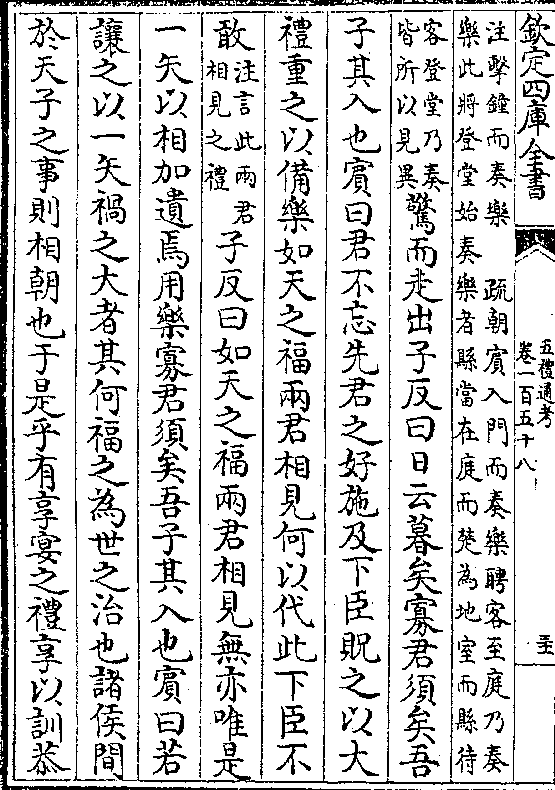 欽定四庫全書
五禮通考
卷一百五十八
至
注擊鐘而奏樂　疏朝賓入門而奏樂聘客至庭乃奏
樂此將登堂始奏樂者縣當在庭而楚為地室而縣待
客登堂乃奏
皆所以見異
驚而走出子反曰日云暮矣寡君須矣吾
子其入也賓曰君不忘先君之好施及下臣貺之以大
禮重之以備樂如天之福兩君相見何以代此下臣不
敢
注言此兩君
相見之禮
子反曰如天之福兩君相見無亦唯是
一矢以相加遺焉用樂寡君須矣吾子其入也賓曰若
讓之以一矢禍之大者其何福之為世之治也諸侯間
於天子之事則相朝也于是乎有享宴之禮享以訓恭